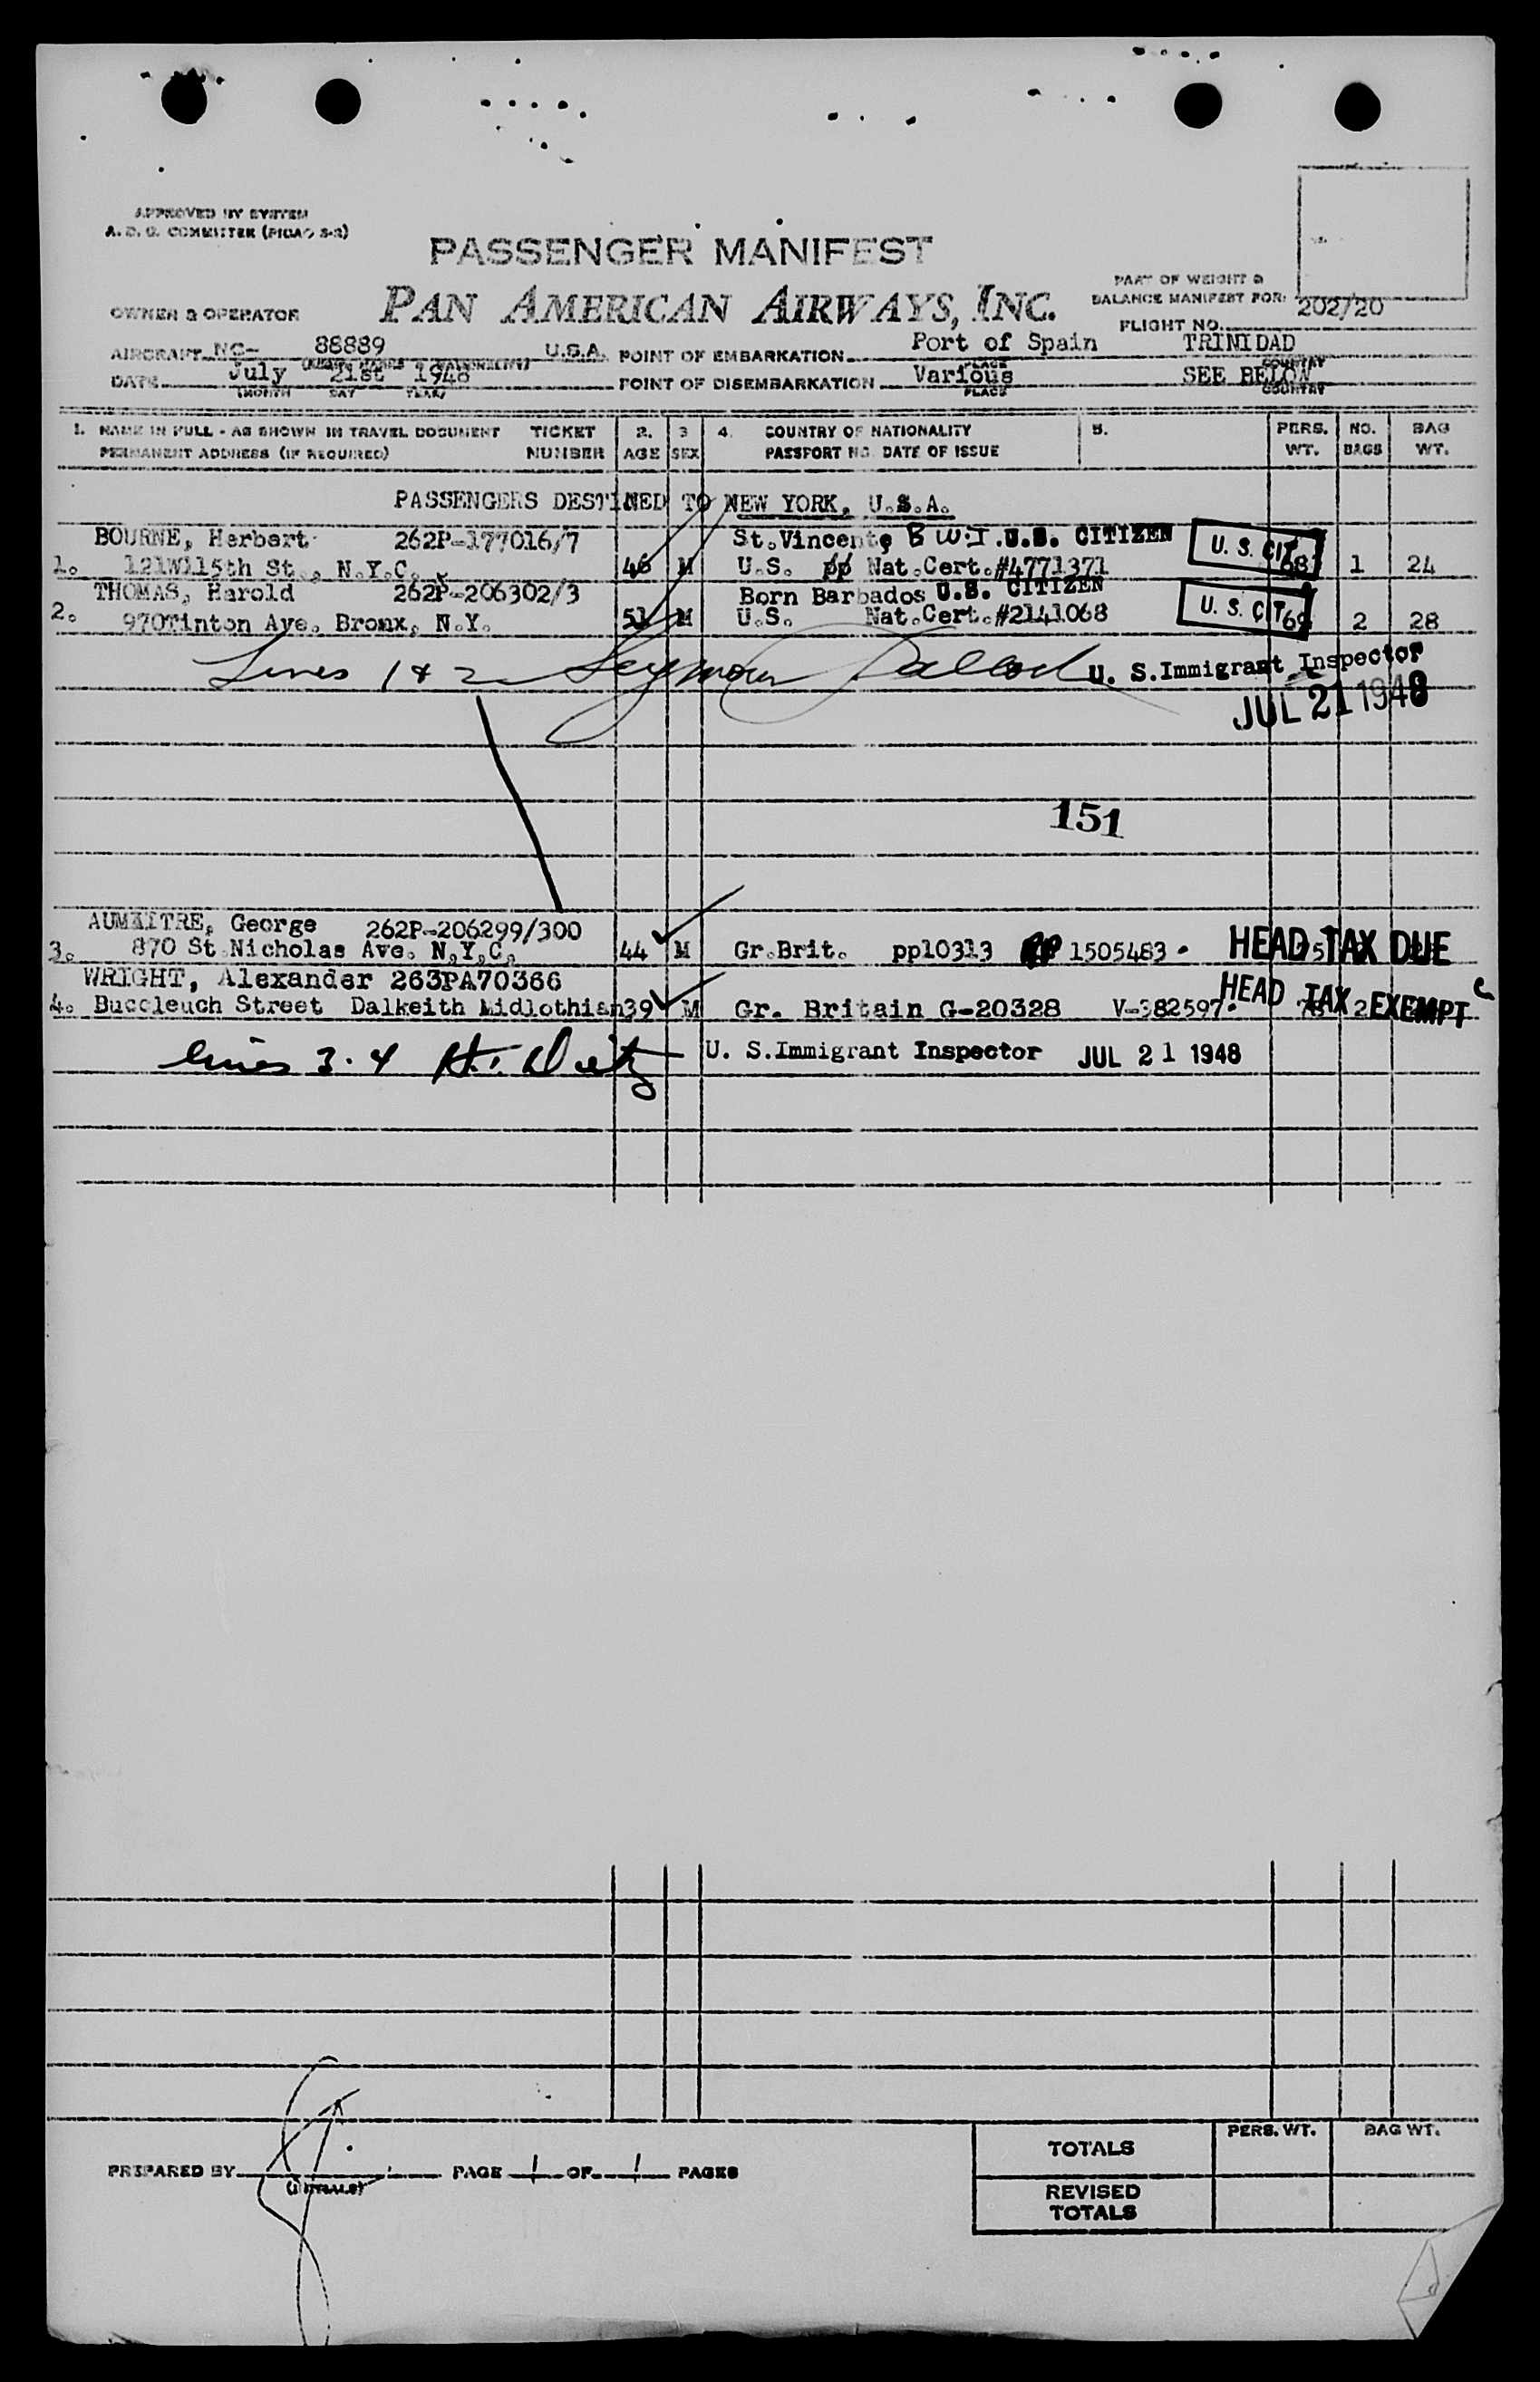 APPROVED BY SYSTEM
A. D. G. COMMITTEE (PICAO 3-2)
PASSENGER MANIFEST
PAN AMERICAN AIRWAYS, INC.
PART OF WEIGHT &
BALANCE MANIFEST FOR:
202/20
OWNER & OPERATOR
FLIGHT NO.
AIRCRAFT NC- 88889 U.S.A. POINT OF EMBARKATION Port of Spain TRINIDAD
PLACE COUNTRY
DATE July 21st 1948 POINT OF DISEMBARKATION Various SEE BELOW
(MONTH DAY YEAR) PLACE COUNTRY
1. NAME IN FULL - AS SHOWN IN TRAVEL DOCUMENT TICKET 2. 3 4. COUNTRY OF NATIONALITY 5. PERS. NO. BAG
PERMANENT ADDRESS (IF REQUIRED) NUMBER AGE SEX PASSPORT NO. DATE OF ISSUE WT. BAGS WT.
PASSENGERS DESTINED TO NEW YORK, U.S.A.
BOURNE, Herbert 262P-177016/7 St.Vincent, B W.I. U.S. CITIZEN U. S. CIT
1. 121W115th St., N.Y.C. 46 M U.S. pp Nat.Cert.#4771371 68 1 24
THOMAS, Harold 262P-206302/3 Born Barbados U.S. CITIZEN
2. 970Tinton Ave. Bronx, N.Y. 51 M U.S. Nat.Cert.#2141068 U. S. CIT 69 2 28
Lines 1 & 2 Seymour U. S.Immigrant Inspector
JUL 21 1948
151
AUMAITRE, George 262P-206299/300
3. 870 St.Nicholas Ave. N.Y.C. 44 M Gr.Brit. pp10313 1505483 HEAD TAX DUE
WRIGHT, Alexander 263PA70366
4. Buccleuch Street Dalkeith Midlothian 39 M Gr. Britain G-20328 V-382597 HEAD TAX EXEMPT
lines 3-4 U. S.Immigrant Inspector JUL 21 1948
PERS. WT. BAG WT.
TOTALS
PREPARED BY PAGE 1 OF 1 PAGES
(INITIALS)
REVISED
TOTALS